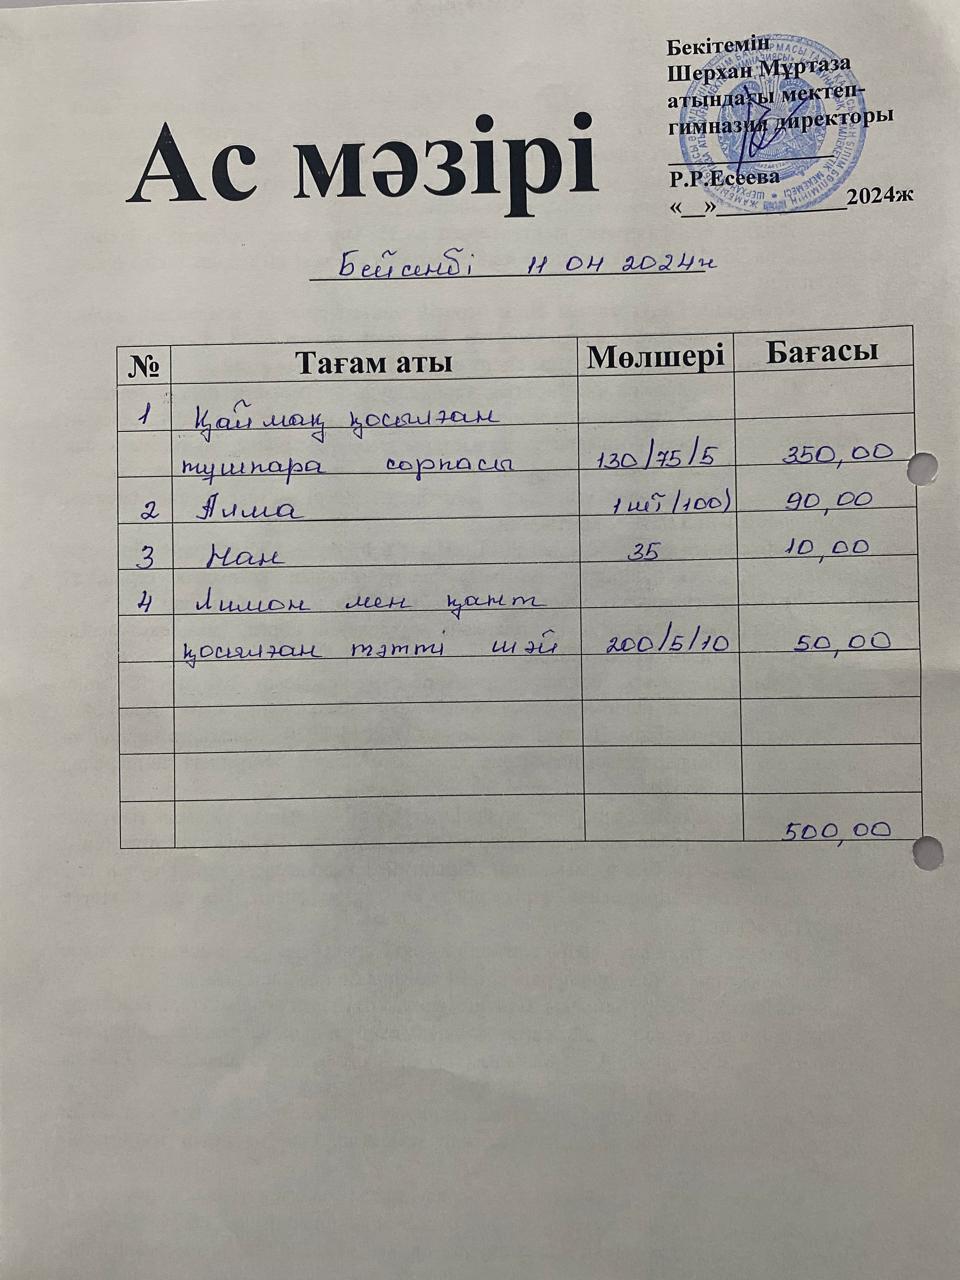 Бекітемін
Шерхан Мұртаза
атындағы мектеп-
гимназия директоры
Р.Р.Есеева
«__»____________2024ж
Ас мәзірі
Бейсенбі 11 04 2024ж
№ Тағам аты Мөлшері Бағасы
1 Қаймақ қосылған
тұшпара сорпасы 130/75/5 350,00
2 Алма 1шт(100) 90,00
3 Нан 35 10,00
4 Лимон мен қант
қосылған тәтті шәй 200/5/10 50,00
500,00